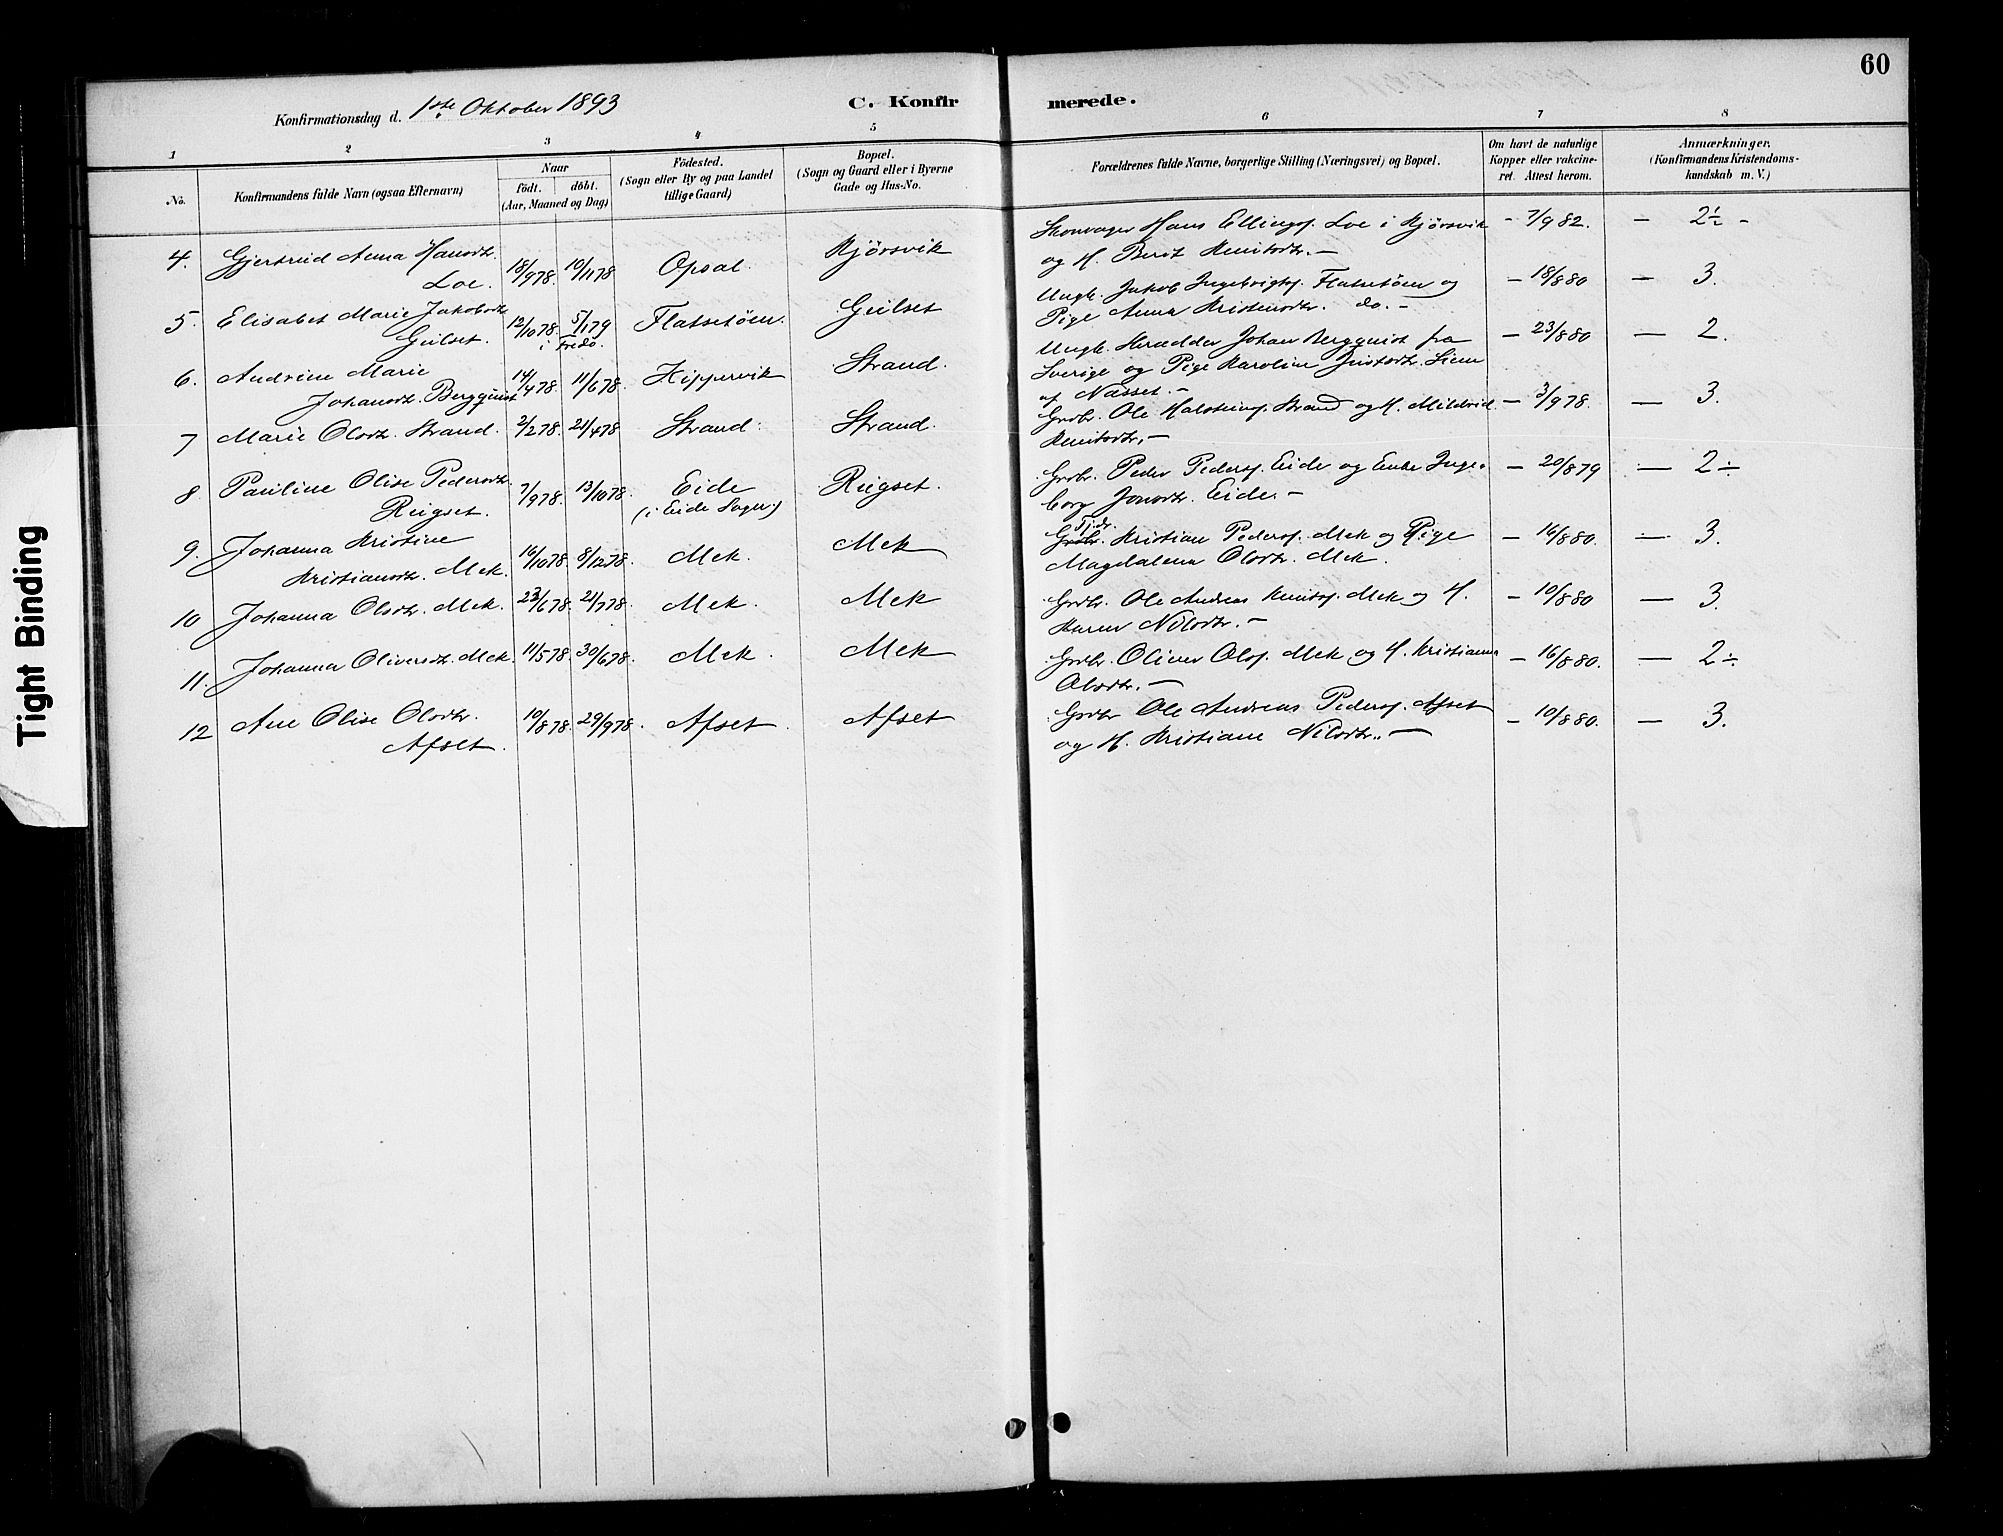 60
Konfirmationsdag d. 1ste Oktober 1893
C. Konfirmerede.
1 2 3 4 5 6 7 8
No.
Konfirmandens fulde Navn (ogsaa Efternavn)
Naar
födt. döbt.
(Aar, Maaned og Dag)
Födested.
(Sogn eller By og paa Landet
tillige Gaard)
Bopæl.
(Sogn og Gaard eller i Byerne
Gade og Hus-No.
Forældrenes fulde Navne, borgerlige Stilling (Næringsvei) og Bopæl.
Om havt de naturlige
Kopper eller vakcine-
ret. Attest herom.
Anmærkninger,
(Konfirmandens Kristendoms-
kundskab m. V.)
4. Gjertrud Anna Hansdtr. Rjørsvik Hans Ellings. Loe i Rjørsvik – 7/9 82. – 2½ –
Loe. 18/9 78. 10/11 78 Opsal. og H. Berit Knutsdtr. –
5. Elisabet Marie Jakobsdtr. 12/10 78. 5/1 79 Flatsetöen. Geilset Ungk. Jakob Ingebrigts. Flatsetöen og – 18/8 80 – 3.
Geilset. i Fredö. Pige Anna Kristensdtr. do. –
6. Andrine Marie 14/4 78. 11/6 78. Strand. Ungk. Skrædder Johan Bergquist fra – 23/8 80 – 2.
Johansdtr. Bergquist Sverige og Pige Karoline
af Nasset. –
7 Marie Olsdtr. Strand. 2/2 78. 21/4 78 Strand. Strand. Grdbr. Ole Halstens. Strand og H. Mildrid – 3/9 78. – 3.
Knutsdtr. –
8 Pauline Olise Pedersdtr. 7/9 78. 13/10 78. Eide Reigset. Grdbr. Peder Peders. Eide og Enke Inge- – 20/8 79 – 2÷
Reigset. (i Eide Sogn) borg Jonsdtr. Eide –
9. Johanna Kristine 16/10 78. 8/12 78. Mek. Mek Grdbr. Tjdr. Kristian Peders. Mek og Pige – 16/8 80. – 3.
Kristiansdtr. Mek. Magdalena Olsdtr. Mek.
10 Johanna Olsdtr. Mek. 23/6 78. 21/7 78. Mek. Mek Grdbr. Ole Andreas Knuts. Mek og H. – 10/8 80 – 3.
Karen Nilsdtr. –
11. Johanna Oliversdtr. Mek. 11/5 78. 30/6 78. Mek. Mek Grdbr. Oliver Ols. Mek og H. Kristianna – 16/8 80. – 2÷
Olsdtr. –
12 Ane Olise Olsdtr. 10/8 78. 29/9 78. Afset. Afset Grdbr Ole Andreas Peders. Afset – 10/8 80. – 3.
Afset. og H. Kristiane Nilsdtr. –
Tight Binding